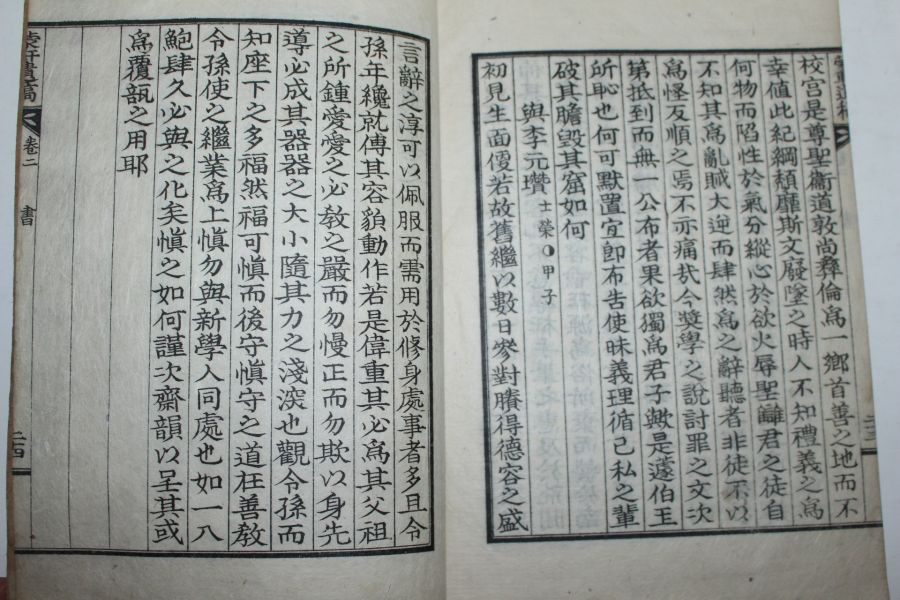 校宮是尊聖衛道敦尚彛倫爲一鄕首善之地而不
幸値此紀綱頹靡斯文廢墜之時人不知禮義之爲
何物而陷性於氣分縱心於欲火辱聖讎君之徒自
不知其爲亂賊大逆而肆然爲之辭聽者非徒不以
爲怪反順之焉不亦痛㢤今奬學之說討罪之文次
第抵到而無一公布者果欲獨爲君子歟是蘧伯玉
所恥也何可默置宜卽布告使昧義理循己私之輩
破其膽毁其窟如何
與李元瓚 士榮○甲子
初見生面優若故舊繼以數日參對賸得德容之盛
言辭之淳可以佩服而需用於修身處事者多且令
孫年纔就傅其容貌動作若是偉重其必爲其父祖
之所鍾愛愛之必敎之嚴而勿慢正而勿欺以身先
導必成其器器之大小隨其力之淺深也觀令孫而
知座下之多福然福可愼而後守愼守之道在善敎
令孫使之繼業爲上愼勿與新學人同處也如一入
鮑肆久必與之化矣愼之如何謹次齋韻以呈其或
爲覆瓿之用耶
卷二
書
二四